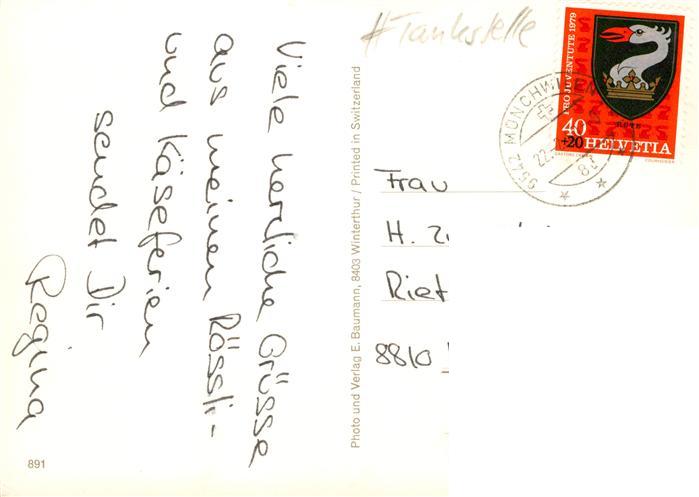 Viele herzliche Grüsse
aus meinen Rössli-
und Käseferien
sendet Dir
Regina
891
Photo und Verlag E. Baumann, 8403 Winterthur / Printed in Switzerland
#Tankstelle
PRO JUVENTUTE 1979
40
+20 HELVETIA
9542 MÜNCHWILEN
22.
83
Frau
H.
Riet
8810